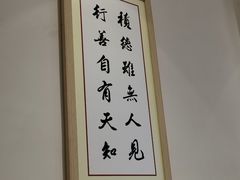 積德雖無人見
行善自有天知